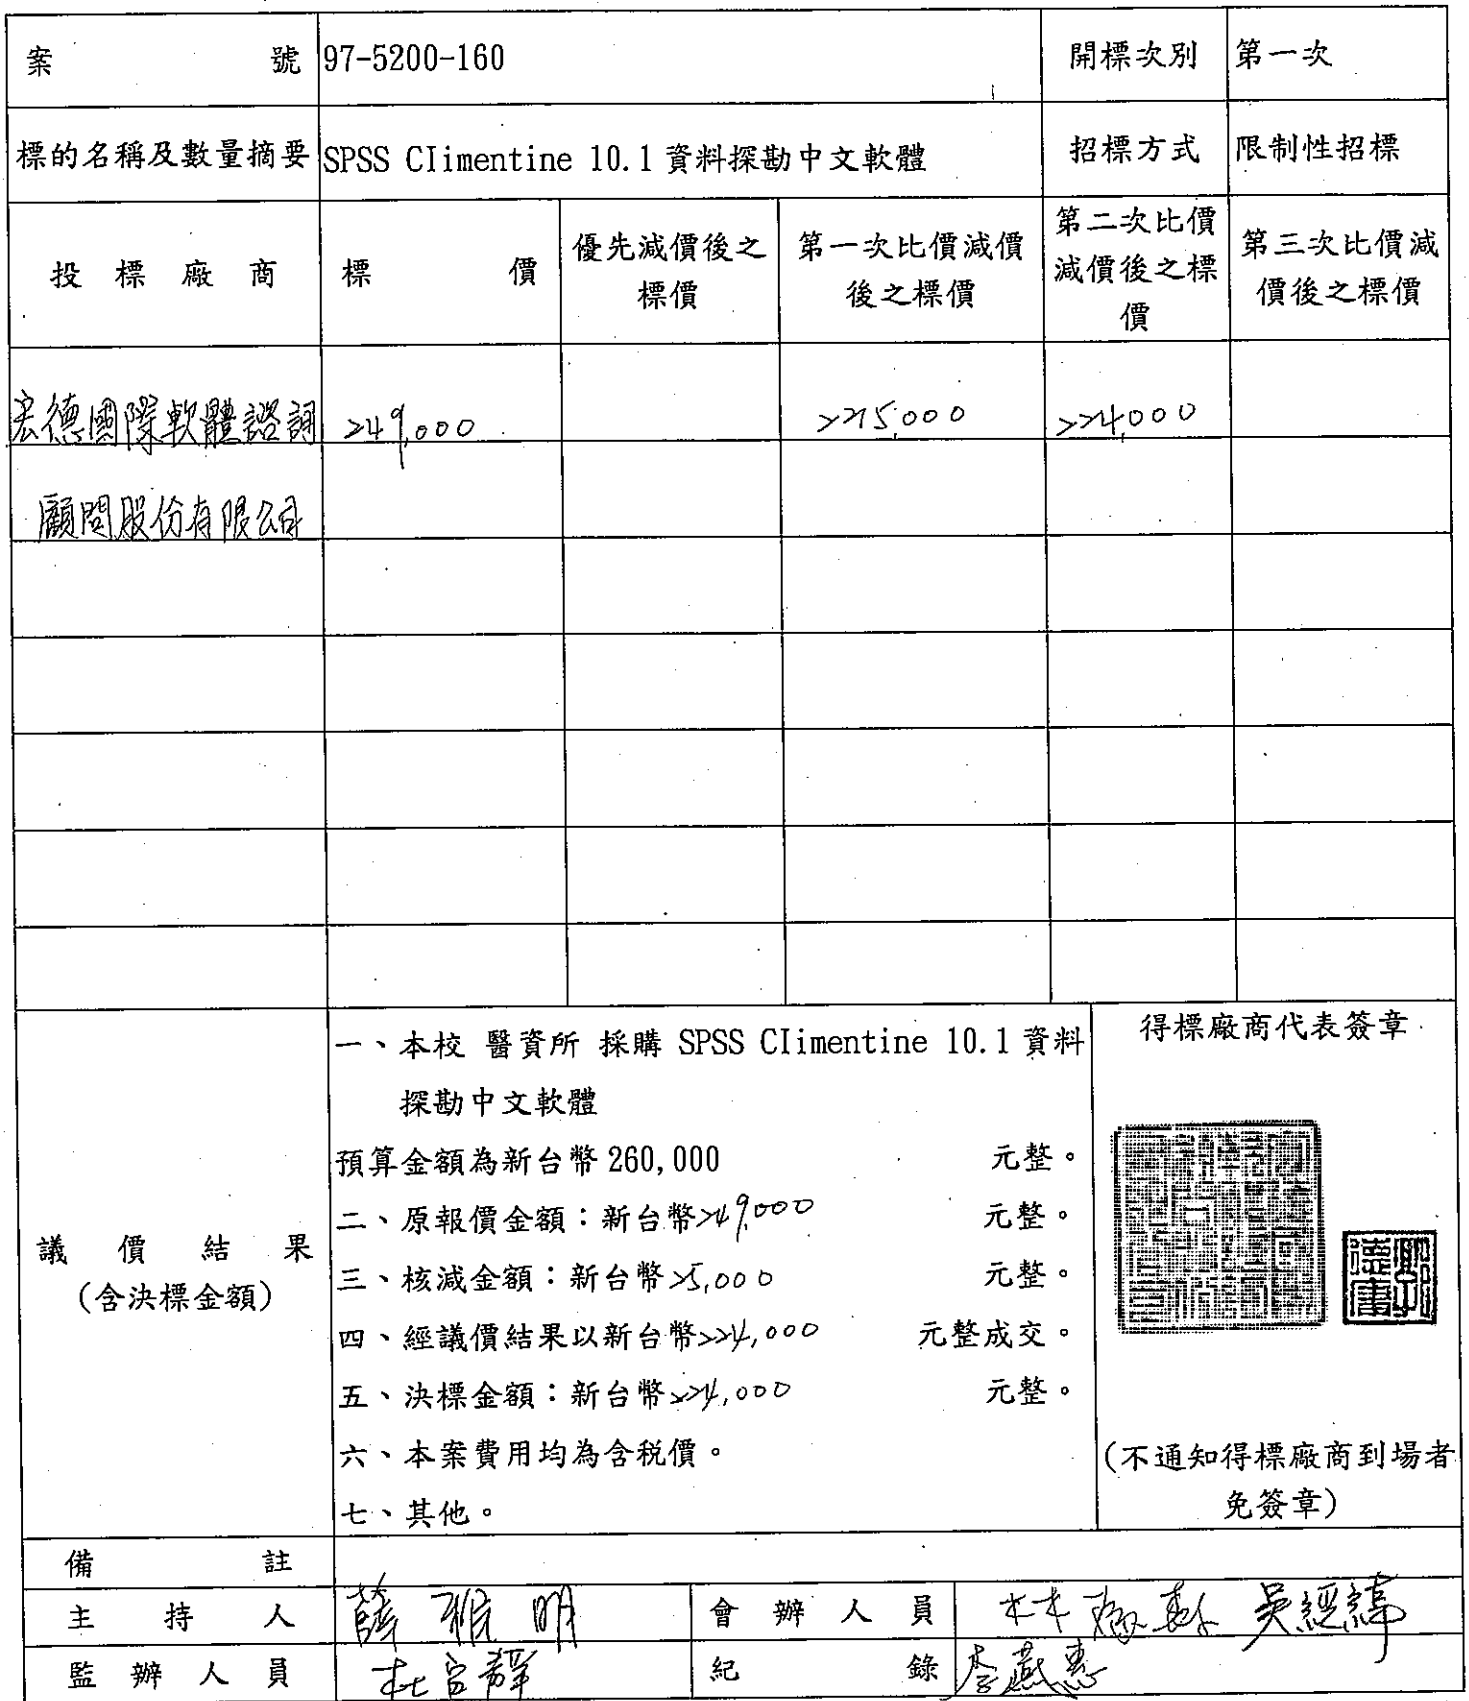 案號 97-5200-160 開標次別 第一次
標的名稱及數量摘要 SPSS CIimentine 10.1 資料探勘中文軟體 招標方式 限制性招標
投標廠商 標價 優先減價後之標價 第一次比價減價後之標價 第二次比價減價後之標價 第三次比價減價後之標價
宏德國際軟體諮詢 249,000 225,000 224,000
顧問股份有限公司
議價結果
(含決標金額)
一、本校 醫資所 採購 SPSS CIimentine 10.1 資料
探勘中文軟體
預算金額為新台幣 260,000 元整。
二、原報價金額：新台幣249,000 元整。
三、核減金額：新台幣25,000 元整。
四、經議價結果以新台幣224,000 元整成交。
五、決標金額：新台幣224,000 元整。
六、本案費用均為含稅價。
七、其他。
得標廠商代表簽章
(不通知得標廠商到場者
免簽章)
備註
主持人 薛雅明 會辦人員 吳經緯
監辦人員 紀錄 李燕惠